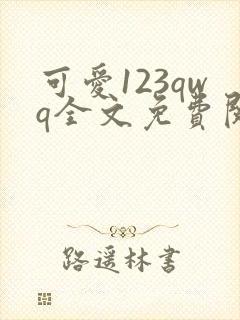 可愛123qw
q全文免費
路遥林書